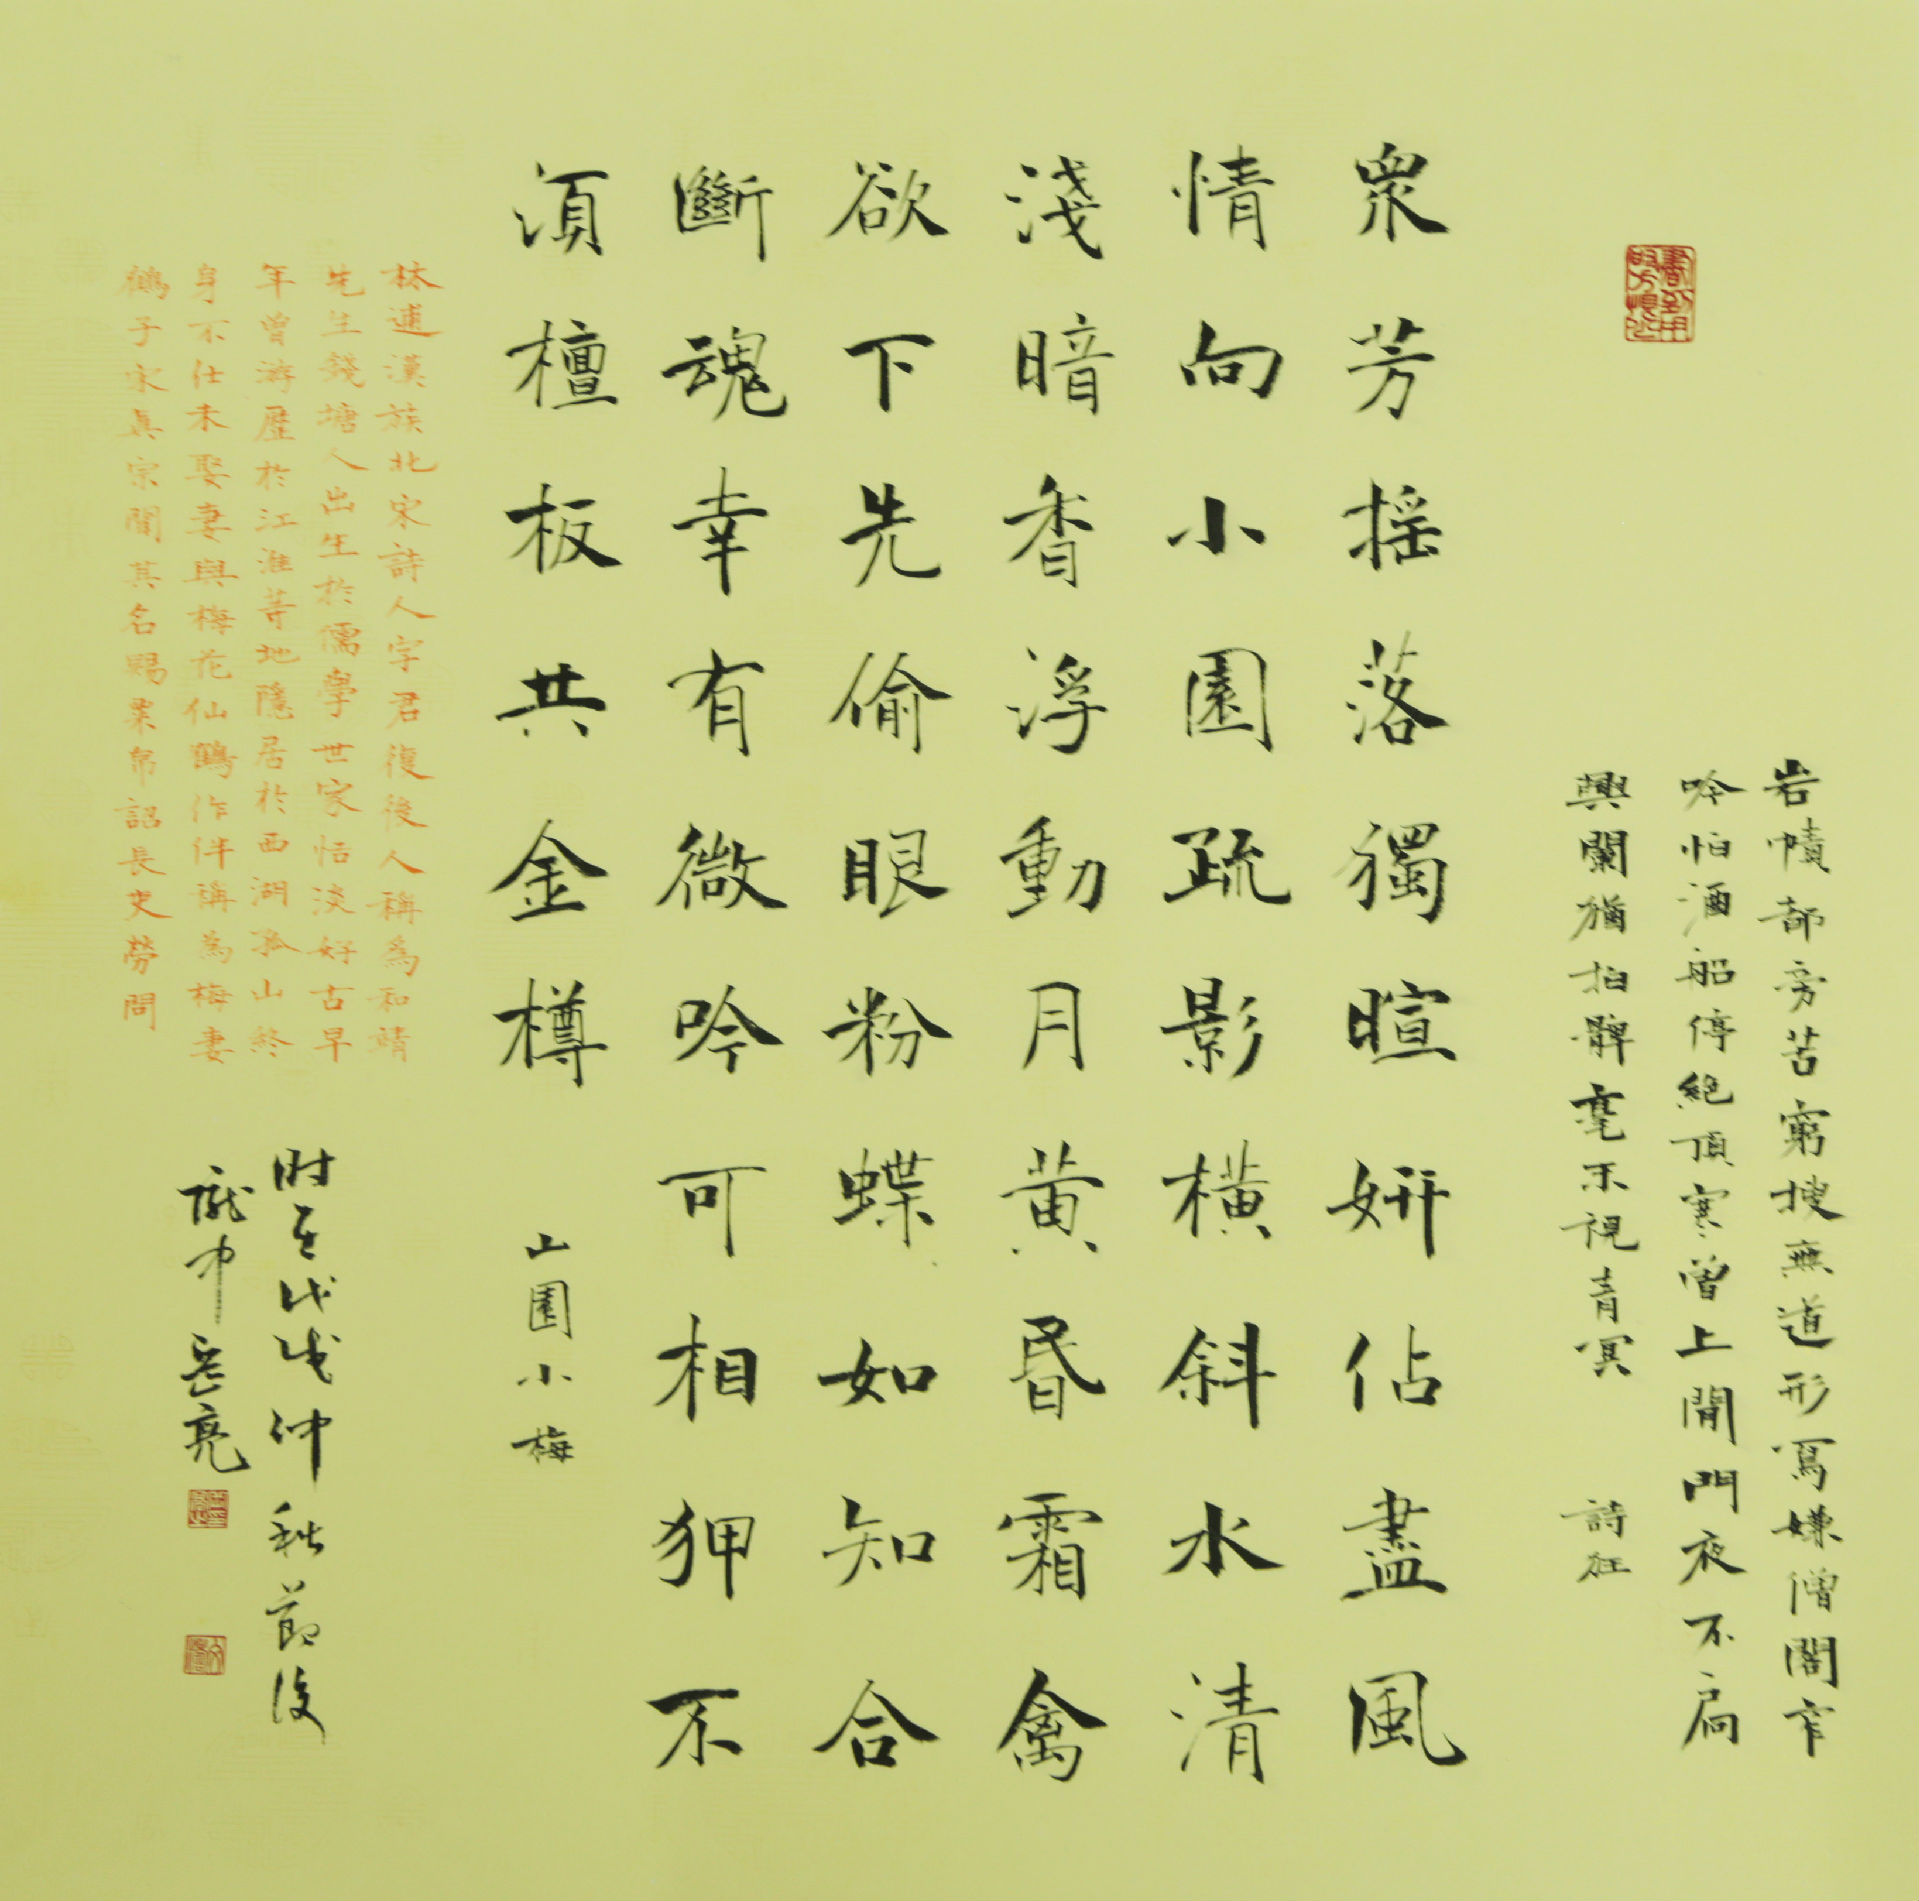 岩幘部旁苦窮搜無道形寫嫌僧閣窄
吟怕酒船停絕頂寒曽上閒門夜不扃
興闌猶拍髀耄不視青冥
詩狂
眾芳摇落獨暄妍佔盡風
情向小園疏影橫斜水清
淺暗香浮動月黄昏霜禽
欲下先偷眼粉蝶如知合
斷魂幸有微吟可相狎不
須檀板共金樽
山園小梅
林逋漢族北宋詩人字君復後人稱為和靖
先生錢塘人出生於儒學世家恬淡好古早
年曾游歷於江淮等地隱居於西湖孤山終
身不仕未娶妻與梅花仙鶴作伴稱為梅妻
鶴子宋真宗聞其名賜粟帛詔長史勞問
时在戊戌仲秋節後
隴中岳亮